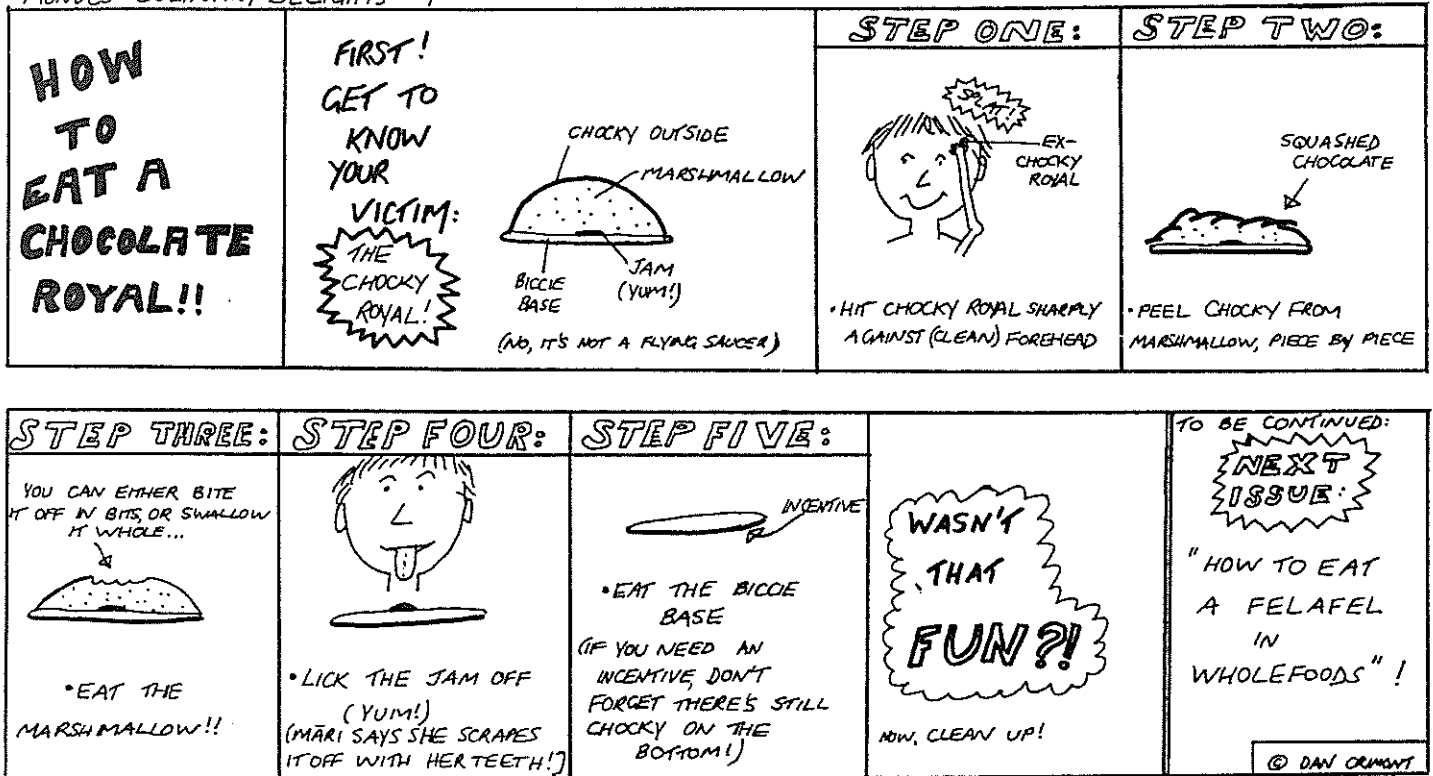 CULINARY DELIGHTS
HOW
TO
EAT A
CHOCOLATE
ROYAL!!
FIRST!
GET TO
KNOW
YOUR
VICTIM:
THE
CHOCKY
ROYAL!
CHOCKY OUTSIDE
MARSHMALLOW
BICCIE
BASE
JAM
(YUM!)
(NO, IT'S NOT A FLYING SAUCER)
STEP ONE:
SPLAT!
EX-
CHOCKY
ROYAL
• HIT CHOCKY ROYAL SHARPLY
AGAINST (CLEAN) FOREHEAD
STEP TWO:
SQUASHED
CHOCOLATE
• PEEL CHOCKY FROM
MARSHMALLOW, PIECE BY PIECE
STEP THREE:
YOU CAN EITHER BITE
IT OFF IN BITS, OR SWALLOW
IT WHOLE...
• EAT THE
MARSHMALLOW!!
STEP FOUR:
• LICK THE JAM OFF
(YUM!)
(MĀRI SAYS SHE SCRAPES
IT OFF WITH HER TEETH!)
STEP FIVE:
INCENTIVE
• EAT THE BICCIE
BASE
(IF YOU NEED AN
INCENTIVE, DON'T
FORGET THERE'S STILL
CHOCKY ON THE
BOTTOM!)
WASN'T
THAT
FUN?!
NOW, CLEAN UP!
TO BE CONTINUED:
NEXT
ISSUE:
"HOW TO EAT
A FELAFEL
IN
WHOLEFOODS"!
© DAN ORMONT